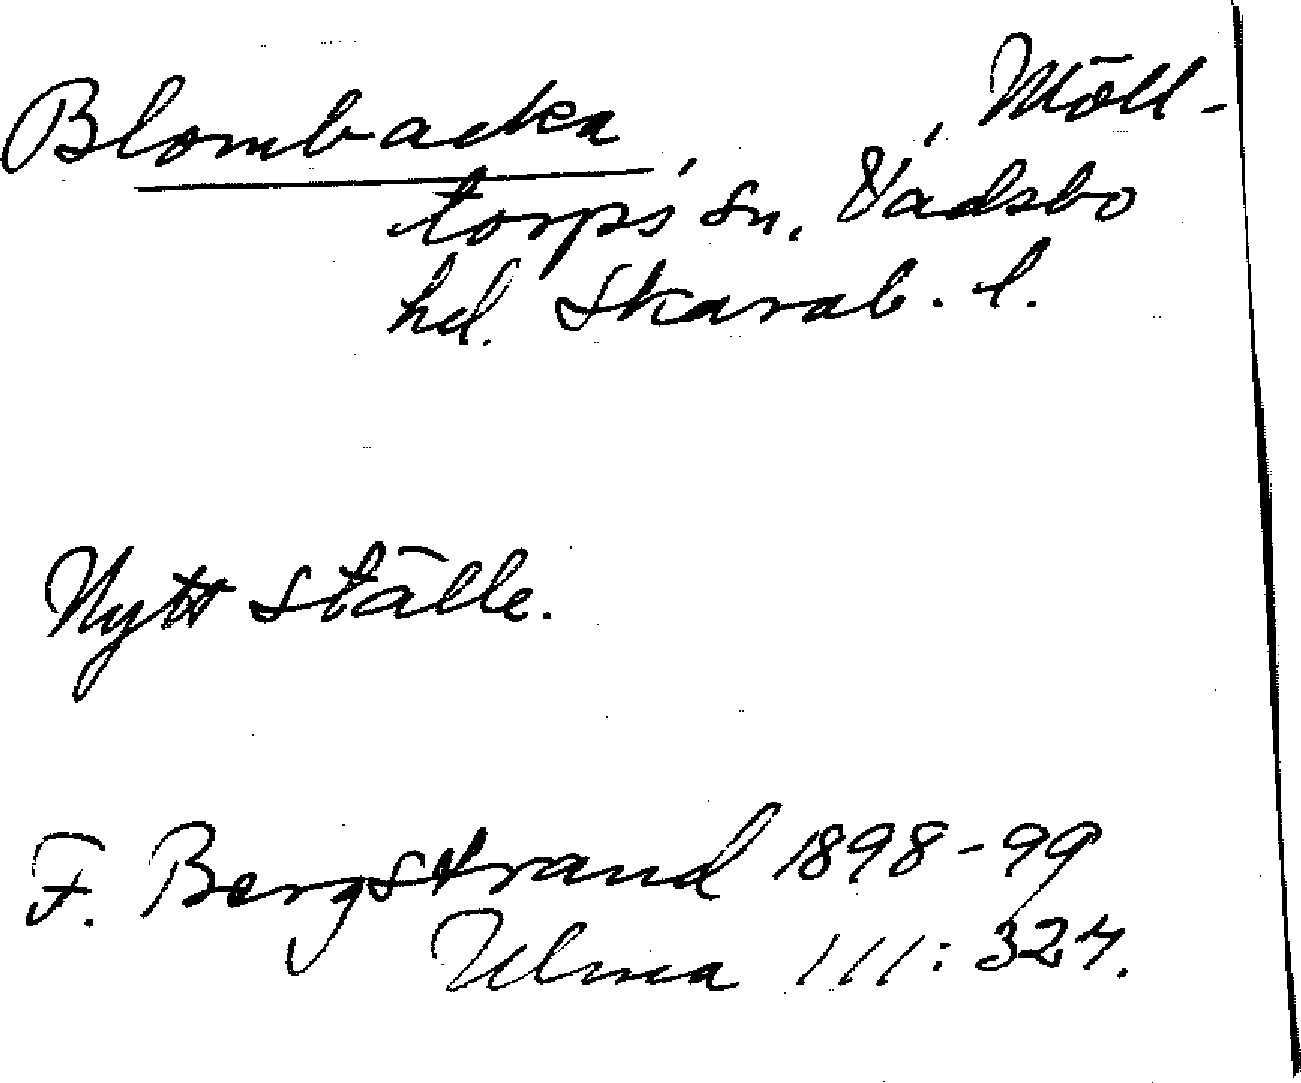 Blombacka, , Möll-
torps sn. Vadsbo
hd. Skarab. l.
Nytt ställe.
F. Bergstrand 1898-99
Ulma 111: 324.